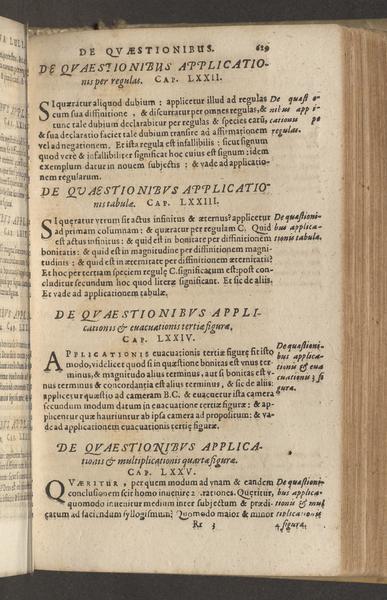 DE QVÆSTIONIBUS. 629
DE QVAESTIONIBUS APPLICATIO-
nis per regulas. CAP. LXXII.
SI quæratur aliquod dubium: applicetur illud ad regulas
cum sua diffinitione, & discurratur per omnes regulas, &
tunc tale dubium declarabitur per regulas & species earū,
& sua declaratio faciet tale dubium transire ad affirmationem
vel ad negationem. Et ista regula est infallibilis: sicut signum
quod verè & infallibiliter significat hoc cuius est signum: idem
exemplum datur in nouem subjectis: & vade ad applicatio-
nem regularum.
De quæstio-
nibus appli-
cationis per
regulas.
DE QVAESTIONIBVS APPLICATIO-
nis tabulæ. CAP. LXXIII.
SI queratur vtrum sit actus infinitus & æternus? applicetur
ad primam columnam: & quæratur per regulam C. Quid
est actus infinitus: & quid est in bonitate per diffinitionem
bonitatis: & quid est in magnitudine per diffinitionem magni-
tudinis: & quid est in æternitate per diffinitionem æternitatis?
Et hoc per tertiam speciem regulę C. significatum est: post con-
cluditur secundum hoc quod literæ significant. Et sic de aliis.
Et vade ad applicationem tabulæ.
De quæstioni-
bus applica-
tionis tabulæ.
DE QVAESTIONIBVS APPLI-
cationis & euacuationis tertiæ figuræ,
CAP. LXXIV.
APPLICATIONIS euacuationis tertiæ figurę fit isto
modo, videlicet quod si in quæstione bonitas est vnus ter-
minus, & magnitudo alius terminus, aut si bonitas est v-
nus terminus & concordantia est alius terminus, & sic de aliis:
applicetur quæstio ad cameram B.C. & euacuetur ista camera
secundum modum datum in euacuatione tertiæ figuræ: & ap-
plicentur quæ hauriuntur ab ipsa camera ad propositum: & va-
de ad applicationem euacuationis tertię figuræ.
De quæstioni-
bus applica-
tionis & eua
cuationis 3 fi
guræ.
DE QVAESTIONIBVS APPLICA-
tionis & multiplicationis quartæ figuræ.
CAP. LXXV.
QVÆRITUR, per quem modum ad vnam & eandem
conclusionem scit homo inuenire 2. rationes. Quęritur,
quomodo inuenitur medium inter subjectum & prædi-
catum ad faciendum syllogismum? Quomodo maior & minor
De quæstioni-
bus applica-
tionis & mul
tiplicationis
4 figuræ.
Rr 3